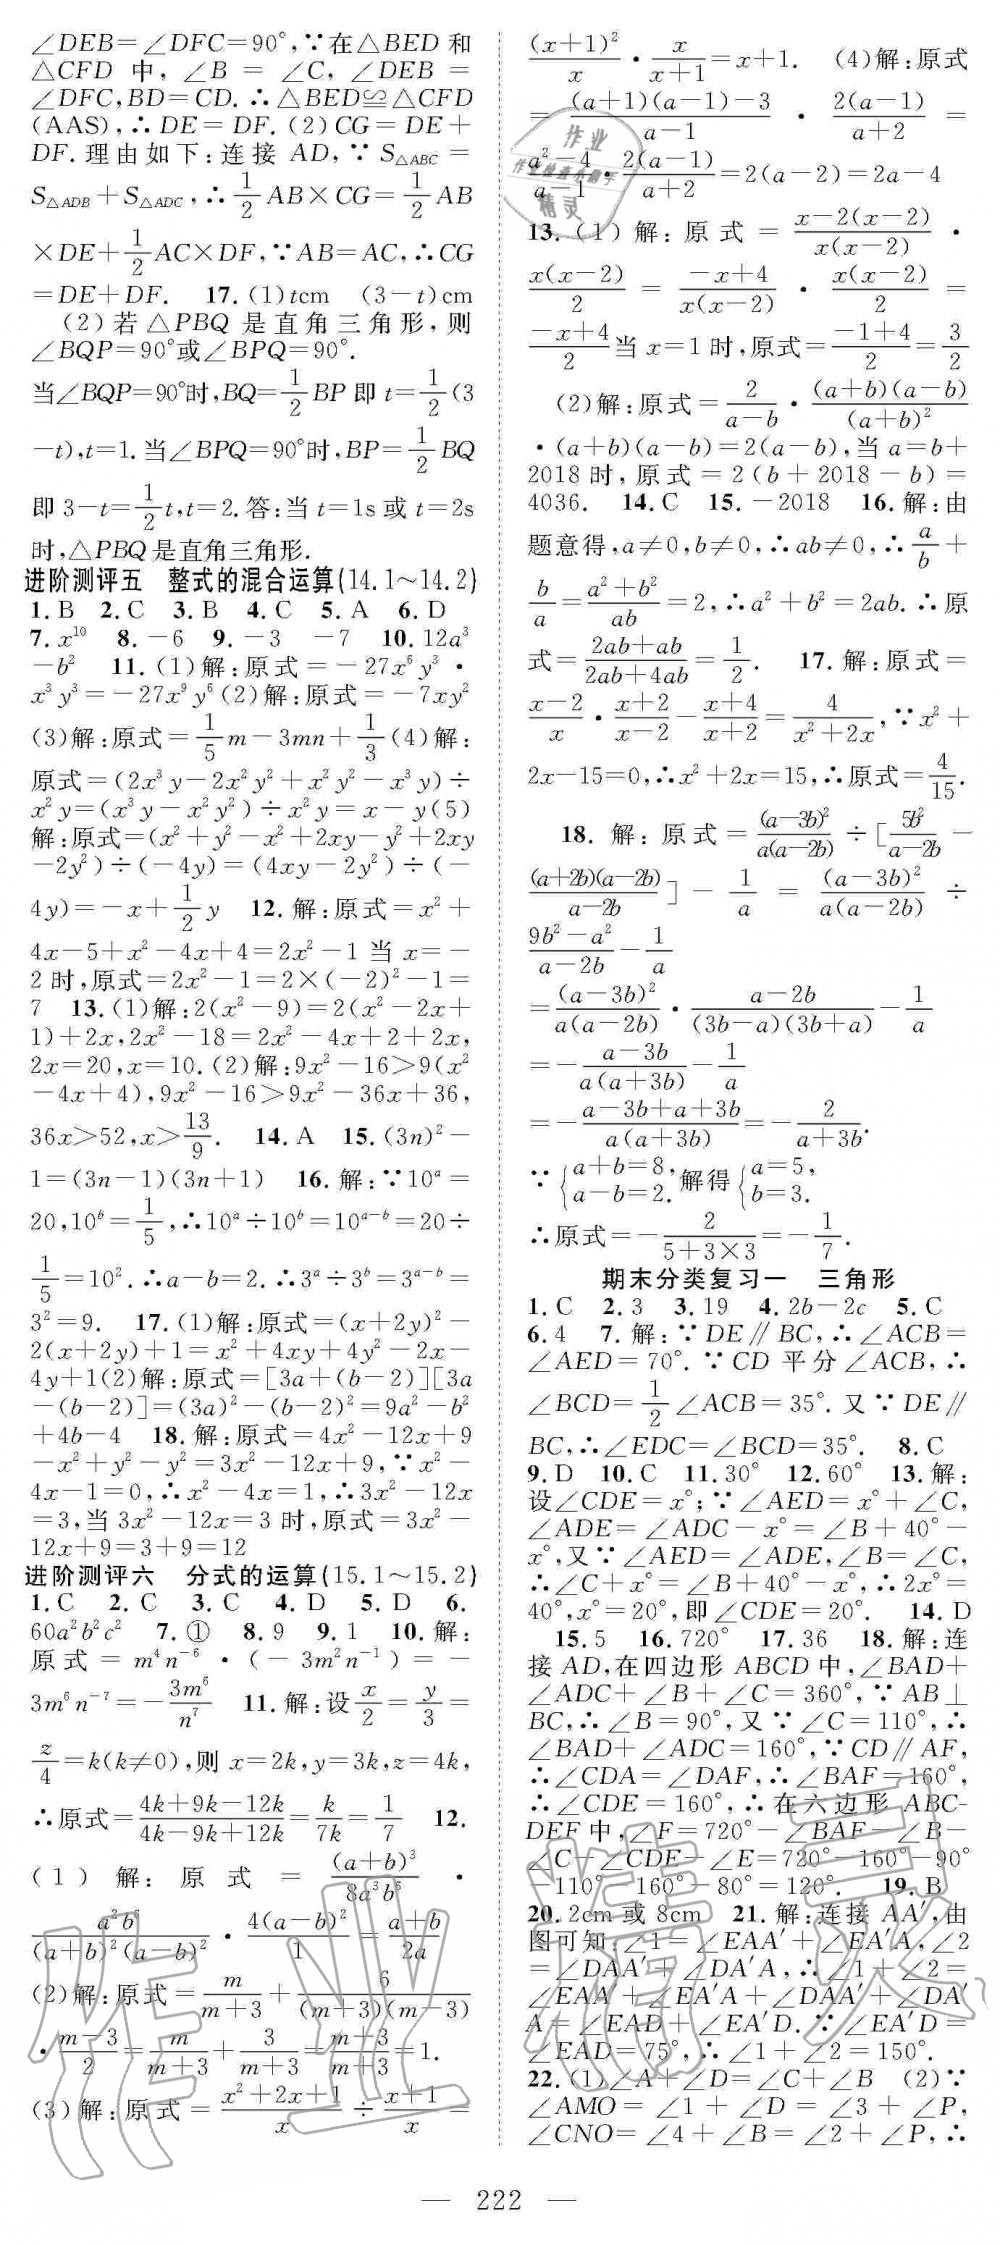 ∠DEB=∠DFC=90°,∵在△BED和
△CFD 中, ∠B = ∠C, ∠DEB =
∠DFC,BD=CD.∴△BED≌△CFD
(AAS),∴DE=DF.(2)CG=DE+
DF.理由如下:连接 AD,∵S△ABC=
S△ADB+S△ADC,∴1/2 AB×CG=1/2 AB
×DE+1/2 AC×DF,∵AB=AC,∴CG
=DE+DF. 17.(1)tcm (3-t)cm
(2)若△PBQ 是直角三角形,则
∠BQP=90°或∠BPQ=90°.
当∠BQP=90°时,BQ=1/2 BP 即 t=1/2(3
-t),t=1.当∠BPQ=90°时,BP=1/2 BQ
即 3-t=1/2 t,t=2.答:当 t=1s 或 t=2s
时,△PBQ是直角三角形.
进阶测评五 整式的混合运算(14.1~14.2)
1.B 2.C 3.B 4.C 5.A 6.D
7.x¹⁰ 8.-6 9.-3 -7 10.12a³
-b² 11.(1)解:原式=-27x⁶y³·
x³y³=-27x⁹y⁶(2)解:原式=-7xy²
(3)解:原式=1/5 m-3mn+1/3(4)解:
原式=(2x³y-2x²y²+x²y²-x³y)÷
x²y=(x³y-x²y²)÷x²y=x-y(5)
解:原式=(x²+y²-x²+2xy-y²+2xy
-2y²)÷(-4y)=(4xy-2y²)÷(-
4y)=-x+1/2 y 12.解:原式=x²+
4x-5+x²-4x+4=2x²-1 当 x=-
2时,原式=2x²-1=2×(-2)²-1=
7 13.(1)解:2(x²-9)=2(x²-2x+
1)+2x,2x²-18=2x²-4x+2+2x,
2x=20,x=10.(2)解:9x²-16>9(x²
-4x+4),9x²-16>9x²-36x+36,
36x>52,x>13/9. 14.A 15.(3n)²-
1=(3n-1)(3n+1) 16.解:∵10ᵃ=
20,10ᵇ=1/5,∴10ᵃ÷10ᵇ=10ᵃ⁻ᵇ=20÷
1/5=10².∴a-b=2.∴3ᵃ÷3ᵇ=3ᵃ⁻ᵇ=
3²=9. 17.(1)解:原式=(x+2y)²-
2(x+2y)+1=x²+4xy+4y²-2x-
4y+1(2)解:原式=[3a+(b-2)][3a
-(b-2)]=(3a)²-(b-2)²=9a²-b²
+4b-4 18.解:原式=4x²-12x+9
-x²+y²-y²=3x²-12x+9,∵x²-
4x-1=0,∴x²-4x=1,∴3x²-12x
=3,当 3x²-12x=3 时,原式=3x²-
12x+9=3+9=12
进阶测评六 分式的运算(15.1~15.2)
1.C 2.C 3.C 4.D 5.D 6.
60a²b²c² 7.① 8.9 9.1 10.解:
原式=m⁴n⁻⁶·(-3m²n⁻¹)=-
3m⁶n⁻⁷=-3m⁶/n⁷ 11.解:设x/2=y/3=
z/4=k(k≠0),则 x=2k,y=3k,z=4k,
∴原式=(4k+9k-12k)/(4k-9k+12k)=k/7k=1/7 12.
(1)解:原式=(a+b)³/8a³b⁶·
a²b⁶/(a+b)²(a-b)²·4(a-b)²/1=(a+b)/2a
(2)解:原式=m/(m+3)+6/(m+3)(m-3)
·(m-3)/2=m/(m+3)+3/(m+3)=(m+3)/(m+3)=1.
(3)解:原式=(x²+2x+1)/x÷(x+1)/x=
(x+1)²/x·x/(x+1)=x+1. (4)解:原式
=((a+1)(a-1)-3)/(a-1)·2(a-1)/(a+2)=
(a²-4)/(a-1)·2(a-1)/(a+2)=2(a-2)=2a-4
13.(1)解:原式=(x-2(x-2))/x(x-2)·
x(x-2)/2=(-x+4)/x(x-2)·x(x-2)/2=
(-x+4)/2当 x=1 时,原式=(-1+4)/2=3/2
(2)解:原式=2/(a-b)·(a+b)(a-b)/(a+b)²
·(a+b)(a-b)=2(a-b),当 a=b+
2018 时,原式=2(b+2018-b)=
4036. 14.C 15.-2018 16.解:由
题意得,a≠0,b≠0,∴ab≠0,∴a/b+
b/a=(a²+b²)/ab=2,∴a²+b²=2ab.∴原
式=(2ab+ab)/(2ab+4ab)=1/2. 17.解:原式=
(x-2)/x·(x+2)/(x-2)-(x+4)/(x+2)=4/(x²+2x),∵x²+
2x-15=0,∴x²+2x=15,∴原式=4/15.
18.解:原式=(a-3b)²/a(a-2b)÷[5b²/(a-2b)-
(a+2b)(a-2b)/(a-2b)]-1/a=(a-3b)²/a(a-2b)÷
(9b²-a²)/(a-2b)-1/a
=(a-3b)²/a(a-2b)·(a-2b)/(3b-a)(3b+a)-1/a
=-(a-3b)/a(a+3b)-1/a
=-(a-3b+a+3b)/a(a+3b)=-2/(a+3b).
∵{a+b=8, a-b=2.解得{a=5, b=3.
∴原式=-2/(5+3×3)=-1/7.
期末分类复习一 三角形
1.C 2.3 3.19 4.2b-2c 5.C
6.4 7.解:∵DE∥BC,∴∠ACB=
∠AED=70°.∵CD 平分∠ACB,∴
∠BCD=1/2∠ACB=35°.又∵DE∥
BC,∴∠EDC=∠BCD=35°. 8.C
9.D 10.C 11.30° 12.60° 13.解:
设∠CDE=x°;∵∠AED=x°+∠C,
∠ADE=∠ADC-x°=∠B+40°-
x°,又∵∠AED=∠ADE,∠B=∠C,
∴∠C+x°=∠B+40°-x°,∴2x°=
40°,x°=20°,即∠CDE=20°. 14.D
15.5 16.720° 17.36 18.解:连
接 AD,在四边形 ABCD 中,∠BAD+
∠ADC+∠B+∠C=360°,∵AB⊥
BC,∴∠B=90°,又∵∠C=110°,∴
∠BAD+∠ADC=160°,∵CD∥AF,
∴∠CDA=∠DAF,∴∠BAF=160°,
∴∠CDE=160°,∴在六边形 ABC-
DEF 中,∠F=720°-∠BAF-∠B-
∠C-∠CDE-∠E=720°-160°-90°
-110°-160°-80°=120°. 19.B
20.2cm 或 8cm 21.解:连接 AA′,由
图可知:∠1=∠EAA′+∠EA′A,∠2
=∠DAA′+∠DA′A,∴∠1+∠2=
∠EAA′+∠EA′A+∠DAA′+∠DA′
A=∠EAD+∠EA′D.∵∠EA′D=
∠EAD=75°,∴∠1+∠2=150°.
22.(1)∠A+∠D=∠C+∠B (2)∵
∠AMO=∠1+∠D=∠3+∠P,
∠CNO=∠4+∠B=∠2+∠P,∴
— 222 —
作业精灵
作业
精灵